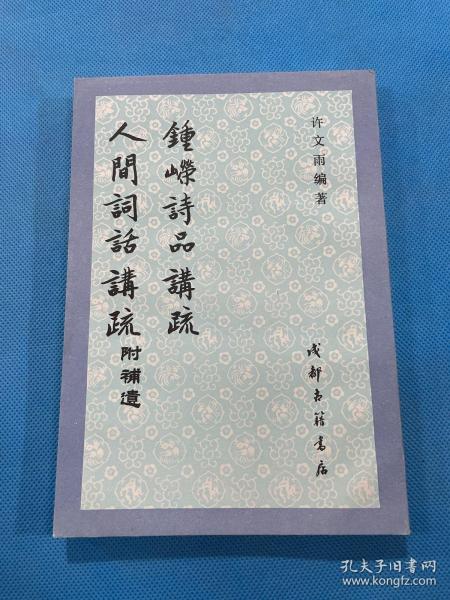 许文雨编著
鍾嶸詩品講疏
人間詞話講疏附補遺
成都古籍書店
孔夫子旧书网
www.kongfz.com